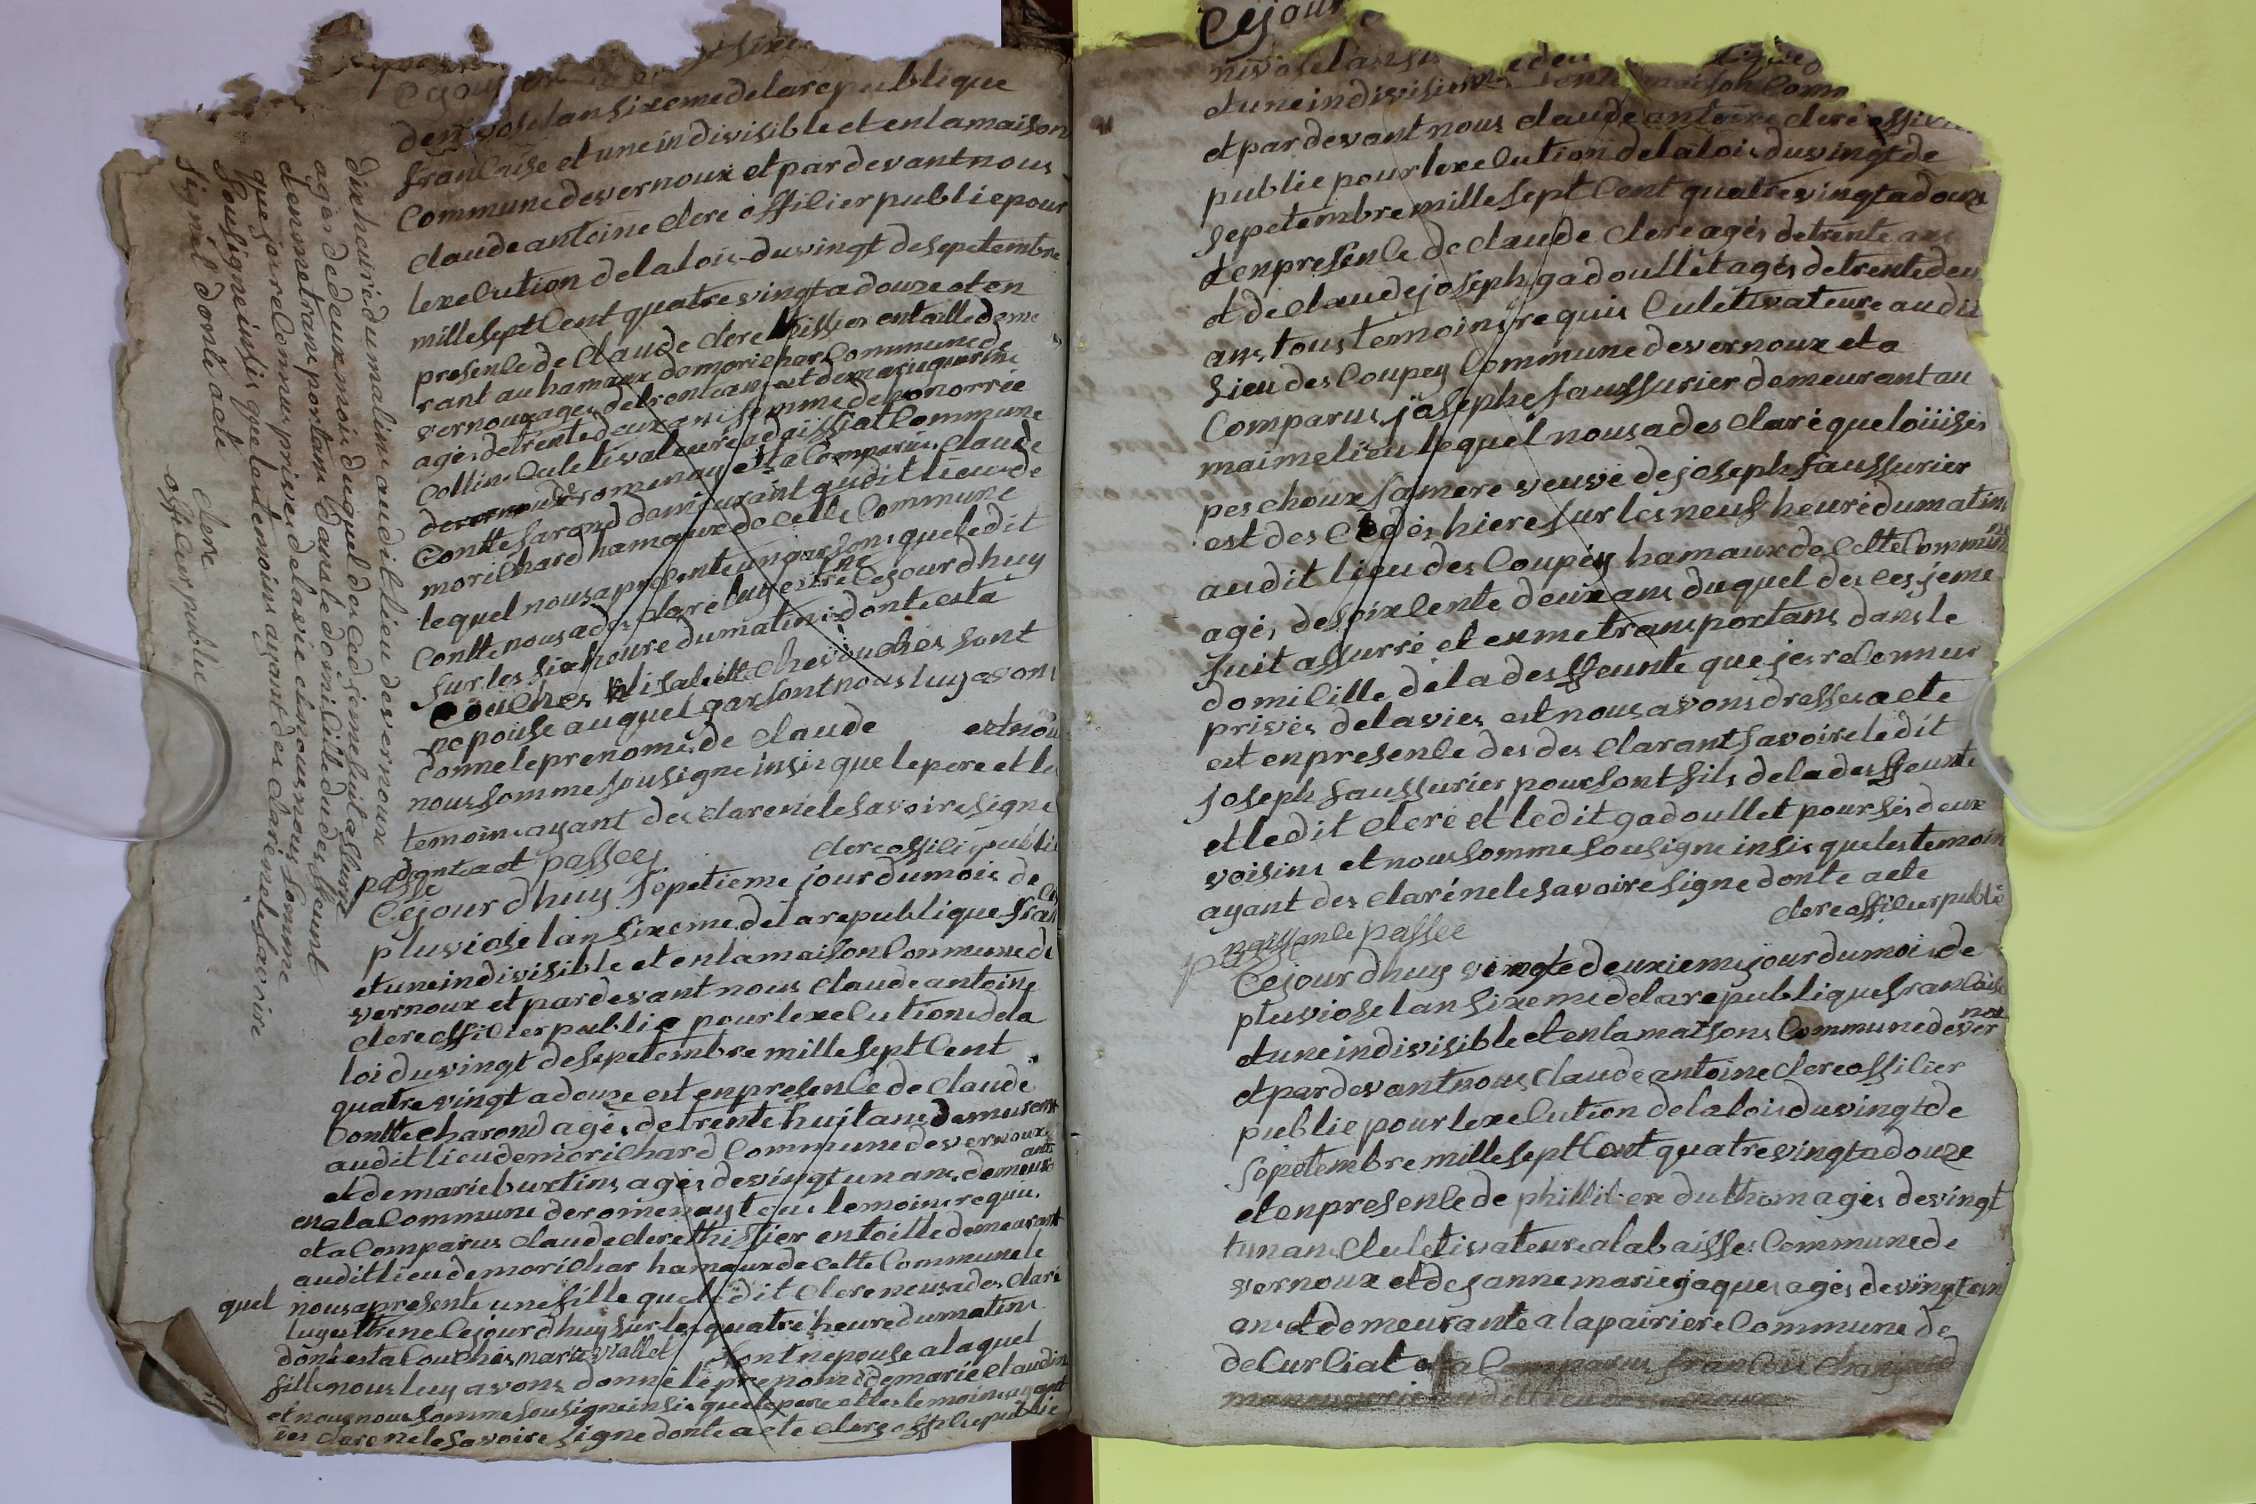 de nivose lan sixeme de la republique
francaise et une indivisible et en la maison
commune de vernoux et par devant nous
claude antoine clere offilier public pour
lexelution de la lois du vingt de sepetembre
mille sept cent quatre vingt a douze et en
presense de claude clere tissier en toille deme
rant au hamaux de morichar commune de
vernoux ages de trente ans et de
ages de trente deux ans femme de honorrée
Collin culetivaleure a commune
de romenay et a comparus claude
Contte farond demeurant audit lieu de
morichard hamaux de cette commune
lequel nous a presente un garsons que le dit
contte nous a des clare luy estre ne ce jour dhuy
sur les six heure du matin donte esta
couches elisabette chevauches sont
nepouse au quel garsont nous luy avons
donne le prenoms de claude et nou
nous somme sousigne insis que le pere et le
temoins ayant des clare ne le savoire signe
donte act passees clere offili publi
passe
Cejour dhuy sepetieme jour du mois de
pluviose lan sixeme de la republique fran
et une indivisible et en la maison commune de
vernoux et par devant nous claude antoine
clere offilier public pour lexelution de la
loi du vingt de sepetembre mille sept cent
quatre vingt a douze est en presense de claude
contte charond ages de trente huit ans demeurent
audit lieu de morichard commune de vernoux
et de marie burtin ages de vingt un ans demeura
ante
en la commune de romenay tous temoins requis
et a comparus claude clere thissier en toille demeurant
audit lieu de morichar hamaux de cette commune le
quel nous a presente une fille que le dit clere nous a des clare
luy esttre ne le jour dhuy sur les quatre heure du matin
dont esta couches marie viallet sont nepouse a la quel
fille nous luy avons donne le prenom de marie claudin
et nous nous somme sousigne insis que le pere et les temoins ayant
des clare ne le savoire signe donte acte clere offilie public
dix heure du malin audit lieu de vernoux
ages de deux mois du quel de ces je me suit assure
et en me trans portant dans le domicille du des ffeunt
que jes reconnus prives de la vie et nous nous somme
sousigne insis que les temoins ayant des clare ne le savoire
signes donte acte
clere
offilier public
Cejour
nivose lan si
et une indivisi maison comm
et par devant nous claude antoine clere offilie
public pour lexelution de la lois du vingt de
sepetembre mille sept cent quatre vingt a douze
et en presense de claude clere ages de trente ans
et de claude joseph gadoullet ages de trente deu
ans tous temoins requis culetivateure audit
lieu des coupey commune de vernoux et a
comparus josephe faussurier demeurant au
maime lieu le quel nous a des clare que loüises
peschoux sa mere veuve de joseph faussurier
est des cedes hiere sur les neuf heure du matin
audit lieu des coupey hamaux de cette commun
ne
ages de soixente deux ans du quel des ces je me
suit assurre et en me trans portans dans le
domicille de la des ffeunte que jes reconnus
prives de la vies est nous avons dresses acte
est en presense des des clarant savoire le dit
joseph faussurier pour sont fils de la des ffeunte
et le dit clere et le dit gadoullet pour ses deux
voisins et nous somme sousigne insis que les temoin
ayant des clare ne le savoire signe donte acte
clere offilier public
naissanse passee
Cejour dhuy vingte deuxieme jour du mois de
pluviose lan sixeme de la republique francaise
et une indivisible et en la maisons commune de ver
nou
et par devant nous claude antoine clere offilier
public pour lexelution de la lois du vingt de
sepetembre mille sept cent quatre vingt a douze
et en presense de phillibere duthom ages de vingt
t un ans culetivateure a la baisses commune de
vernoux et de janne marie jaques ages de vingt un
ans et demeurante a la pairiere commune de
de curciat et a comparus francois